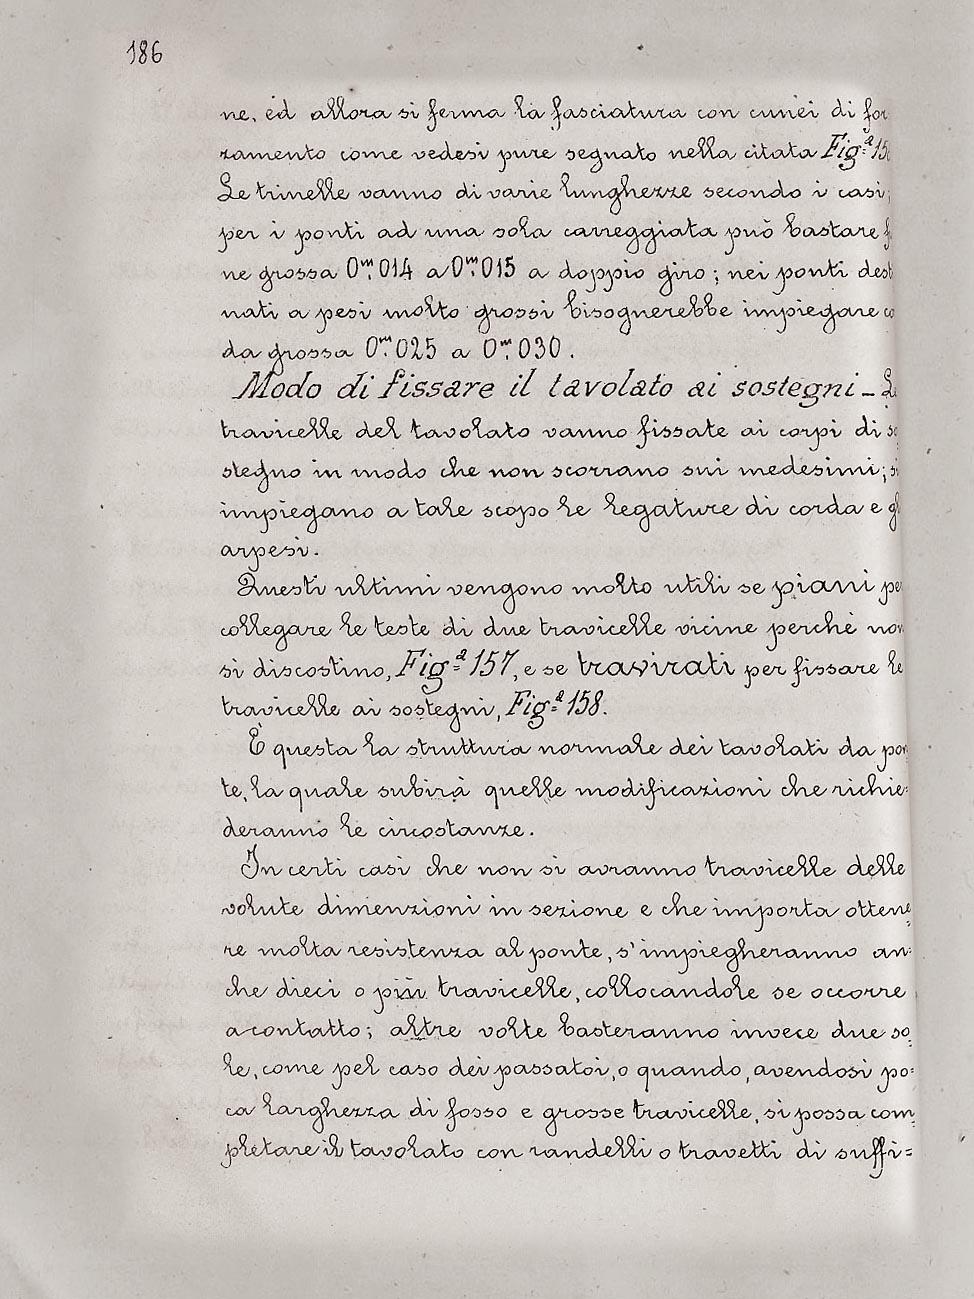 186
ne, ed allora si ferma la fasciatura con cunei di for
zamento come vedesi pure segnato nella citata Fig.ª 15
Le trinelle vanno di varie lunghezze secondo i casi;
per i ponti ad una sola carreggiata può bastare
ne grossa 0.m 014 a 0.m 015 a doppio giro; nei ponti dest
nati a pesi molto grossi bisognerebbe impiegare co
da grossa 0.m 025 a 0.m 030.
Modo di fissare il tavolato ai sostegni - Le
travicelle del tavolato vanno fissate ai corpi di so
stegno in modo che non scorrano sui medesimi; si
impiegano a tale scopo le legature di corda e gl
arpesi.
Questi ultimi vengono molto utili se piani per
collegare le teste di due travicelle vicine perchè non
si discostino, Fig.ª 157, e se travirati per fissare le
travicelle ai sostegni, Fig.ª 158.
È questa la struttura normale dei tavolati da pon
te, la quale subirà quelle modificazioni che richie=
deranno le circostanze.
In certi casi che non si avranno travicelle delle
volute dimenzioni in sezione e che importa ottene=
re molta resistenza al ponte, s'impiegheranno an=
che dieci o più travicelle, collocandole se occorre
a contatto; altre volte basteranno invece due so=
le, come pel caso dei passatoi, o quando, avendosi po=
ca larghezza di fosso e grosse travicelle, si possa com=
pletare il tavolato con randelli o travetti di suffi=